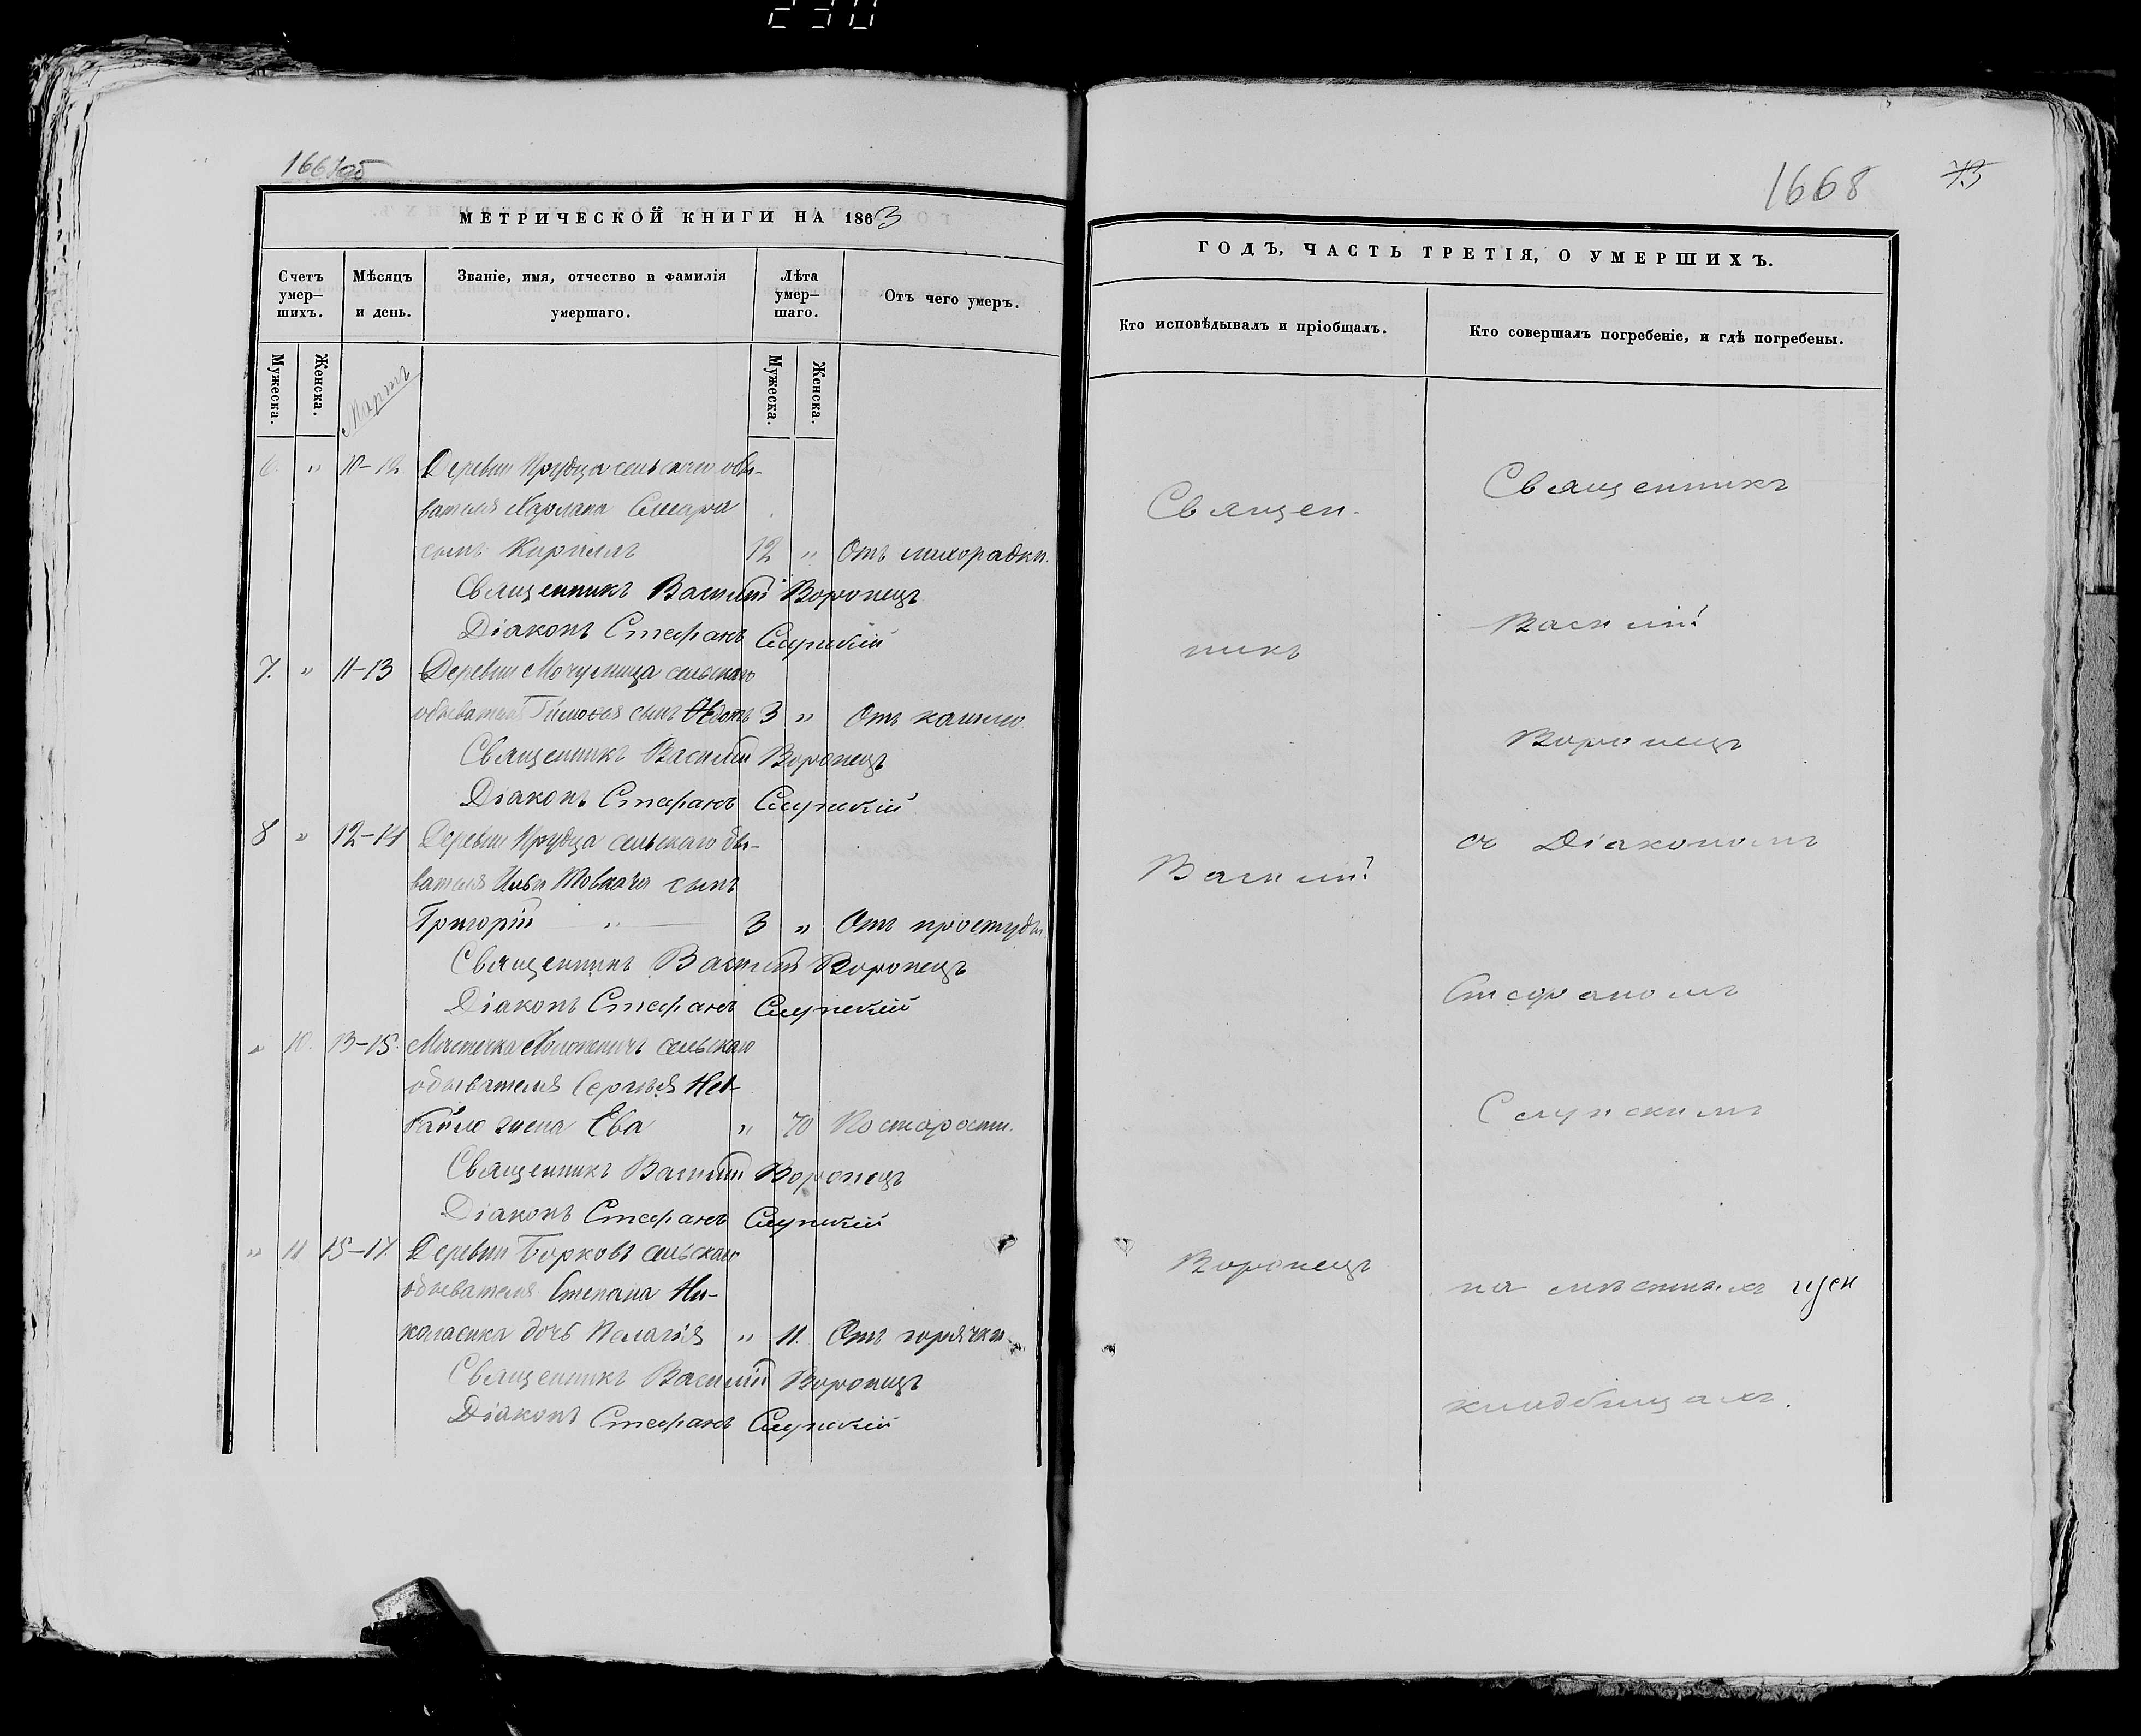 230
МЕТРИЧЕСКОЙ КНИГИ НА 1863
Счетъ умер–шихъ.
Мѣсяцъ и день.
Званіе, имя, отчество и фамилія умершаго.
Лѣта умер–шаго.
Отъ чего умеръ.
Мужеска.
Женска.
Мартъ
Мужеска.
Женска.
6. " 10–12 Деревни Прудца сельскаго обы-
вателя Харлапа
сынъ Кириллъ 12 " Отъ лихорадки.
Священникъ Василій Воронецъ
Діаконъ Стефанъ Слупскій
7. " 11–13 Деревни сельскаго
обывателя Тимофея сынъ 3 " Отъ кашлю
Священникъ Василій Воронецъ
Діаконъ Стефанъ Слупскій
8 " 12–14 Деревни Прудца сельскаго обы-
вателя Ильи сынъ
Григорій " 3 " Отъ простуды
Священникъ Василій Воронецъ
Діаконъ Стефанъ Слупскій
" 10. 13–15. Мѣстечка сельскаго
обывателя Сергѣя
жена Ева " 70 По старости.
Священникъ Василій Воронецъ
Діаконъ Стефанъ Слупскій
" 11 15–17. Деревни Борковъ сельскаго
обывателя Степана Ни-
коласика дочь Пелагія " 11. Отъ горячки.
Священникъ Василій Воронецъ
Діаконъ Стефанъ Слупскій
1668 73
ГОДЪ, ЧАСТЬ ТРЕТІЯ, О УМЕРШИХЪ.
Кто исповѣдывалъ и пріобщалъ.
Кто совершалъ погребеніе, и гдѣ погребены.
Священ-
никъ
Василій
Воронецъ
Священникъ
Василій
Воронецъ
съ Діакономъ
Стефаномъ
Слупскимъ
на мѣстныхъ
кладбищахъ.